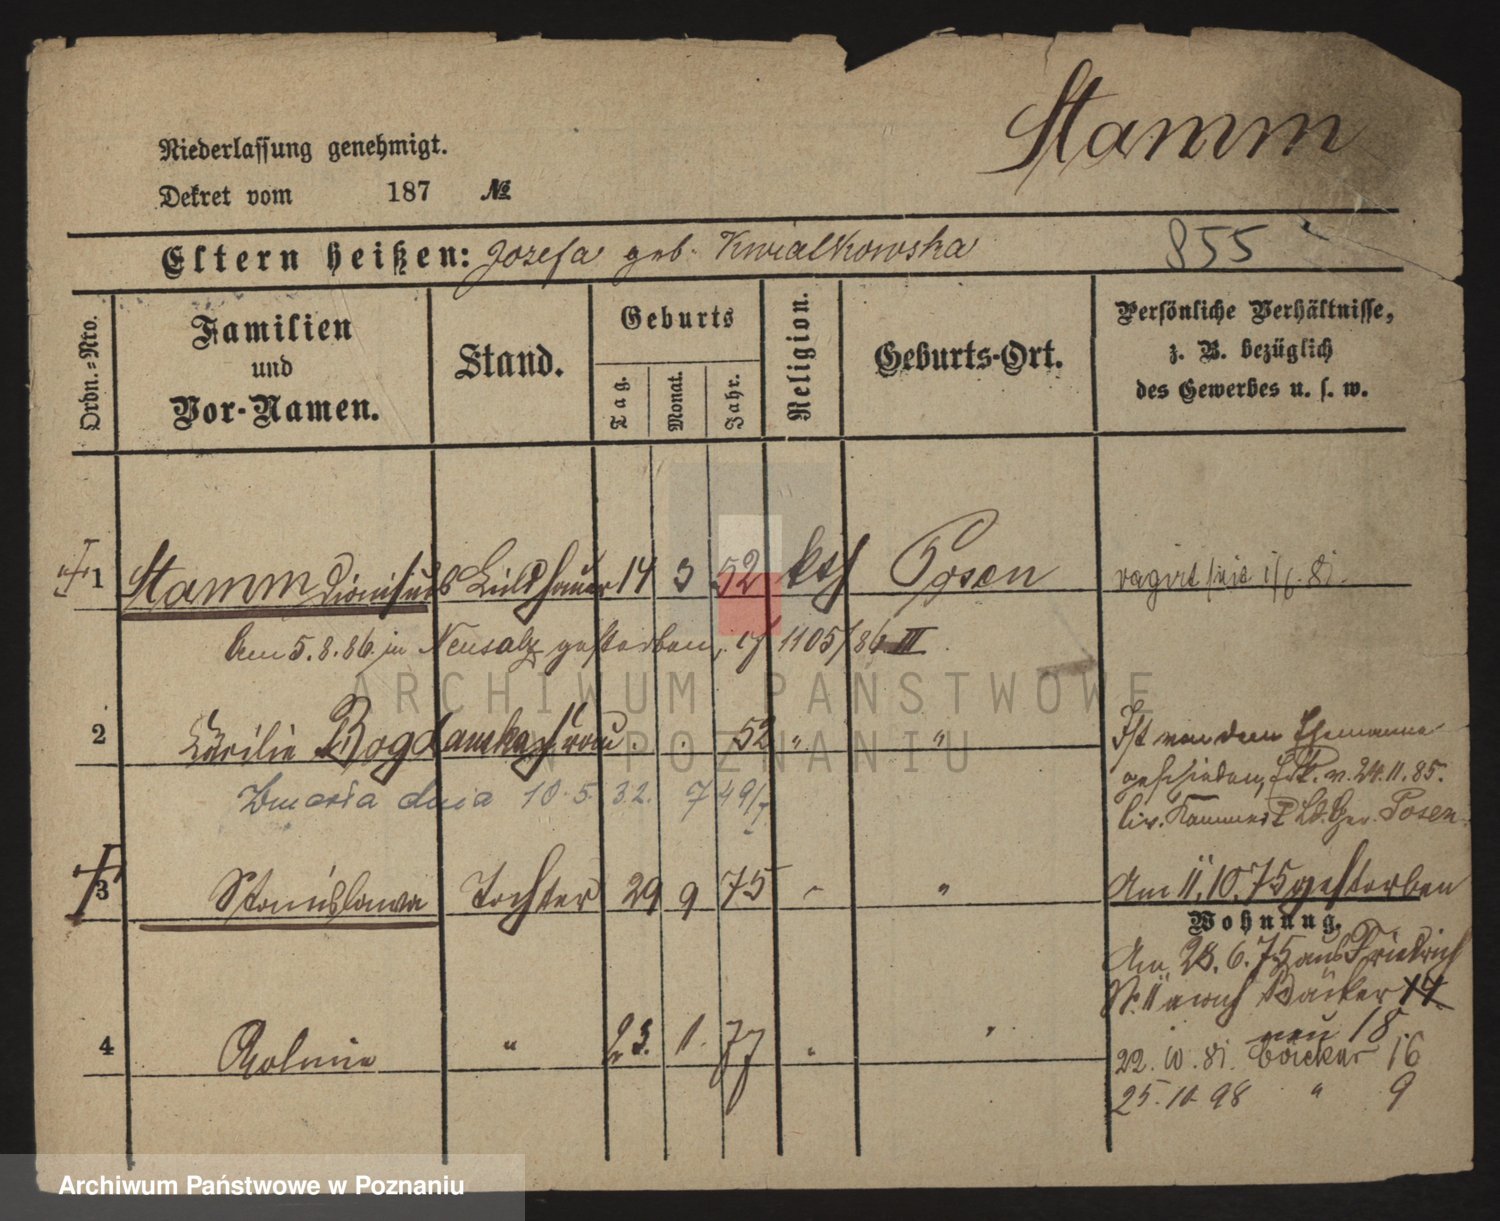 Stamm
Niederlassung genehmigt.
Dekret vom 187 №
Eltern heißen: Jozefa geb. Kwiatkowska 855
Ordn.-Nro.
Familien
und
Vor-Namen.
Stand.
Geburts
Tag.
Monat.
Jahr.
Religion.
Geburts-Ort.
Persönliche Verhältnisse,
z. B. bezüglich
des Gewerbes u. s. w.
1 Stamm Dionisius Bildhauer 14 3 52 kth Posen
Am 5.8.86. in Neusalz gestorben, cf 1105/86 III
2 Cäcilie Bogdanska Frau . . 52 " "
Ist von dem Ehemanne
geschieden, Erk. v. 24.11.85.
Civ. Kammer I Ld. Ger. Posen.
Zmarła dnia 10.5.32. 749/
3 Stanislawa Tochter 29 9 75 " "
Am 11.10.75 gestorben
Wohnung.
Am 28.6.75 aus Friedrich
Str. 11 nach Bäcker 14
neu 18
4 " 23. 1. 77 " "
22. 10. 81. Bäcker 16
25. 10 98 " 9
ARCHIWUM PAŃSTWOWE
W POZNANIU
Archiwum Państwowe w Poznaniu